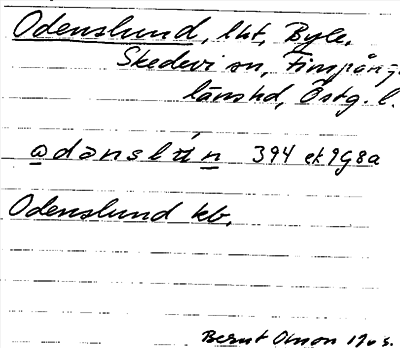 Odenslund, lht, Byle,
Skedevi sn, Finspång
länshd, Östg. l.
394 ek 9G8a
Odenslund kb.
Bernt Olson